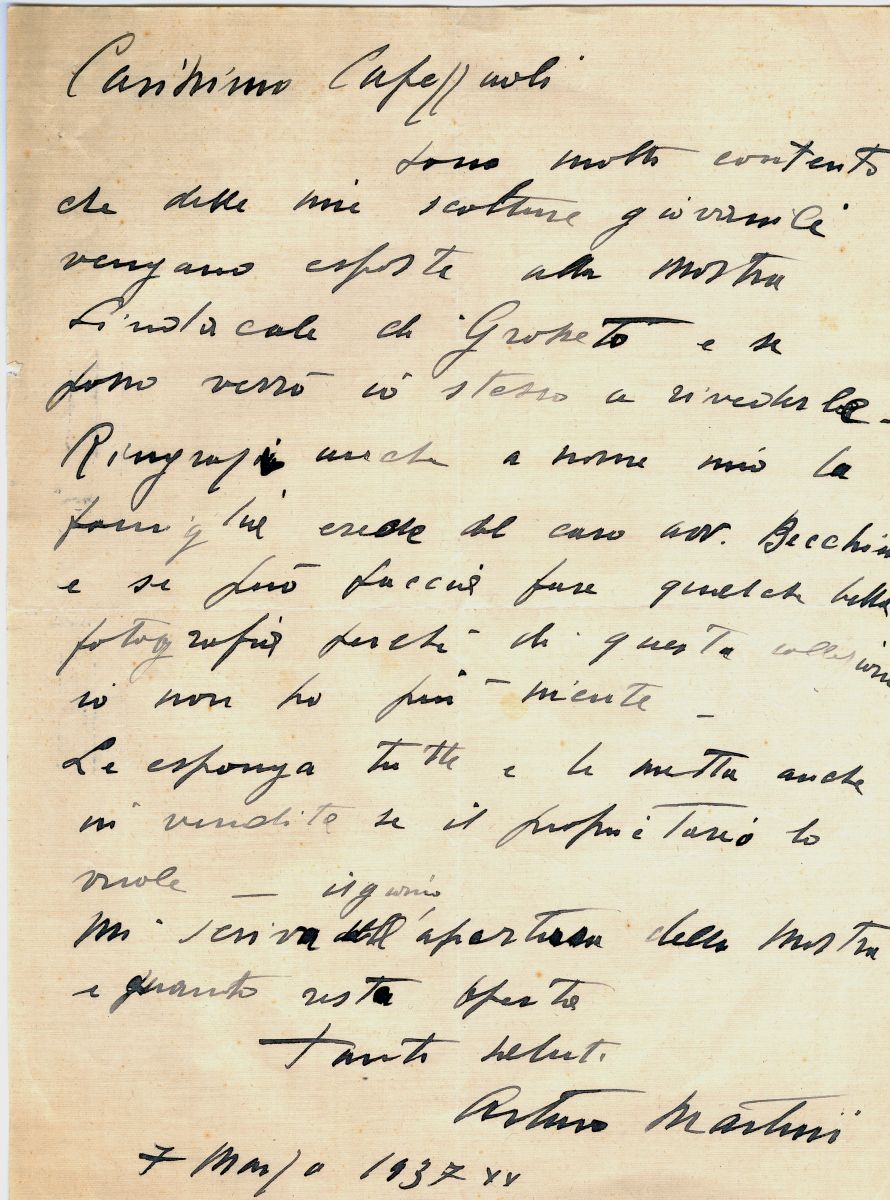 Carissimo Capezzuoli
sono molto contento
che delle mie scolture giovanili
vengano esposte alla mostra
Sindacale di Grosseto e se
posso verrò io stesso a rivederle -
Ringrazi anche a nome mio la
famiglia erede del caro avv. Becchini
e se può faccia fare qualche bella
fotografia perchè di questa collezione
io non ho più niente _
Le esponga tutte e le metta anche
in vendita se il proprietario lo
vuole _ il giorno
Mi scriva dell'apertura della mostra
e quanto resta aperta
Tanti saluti
Arturo Martini
7 Marzo 1937 XV